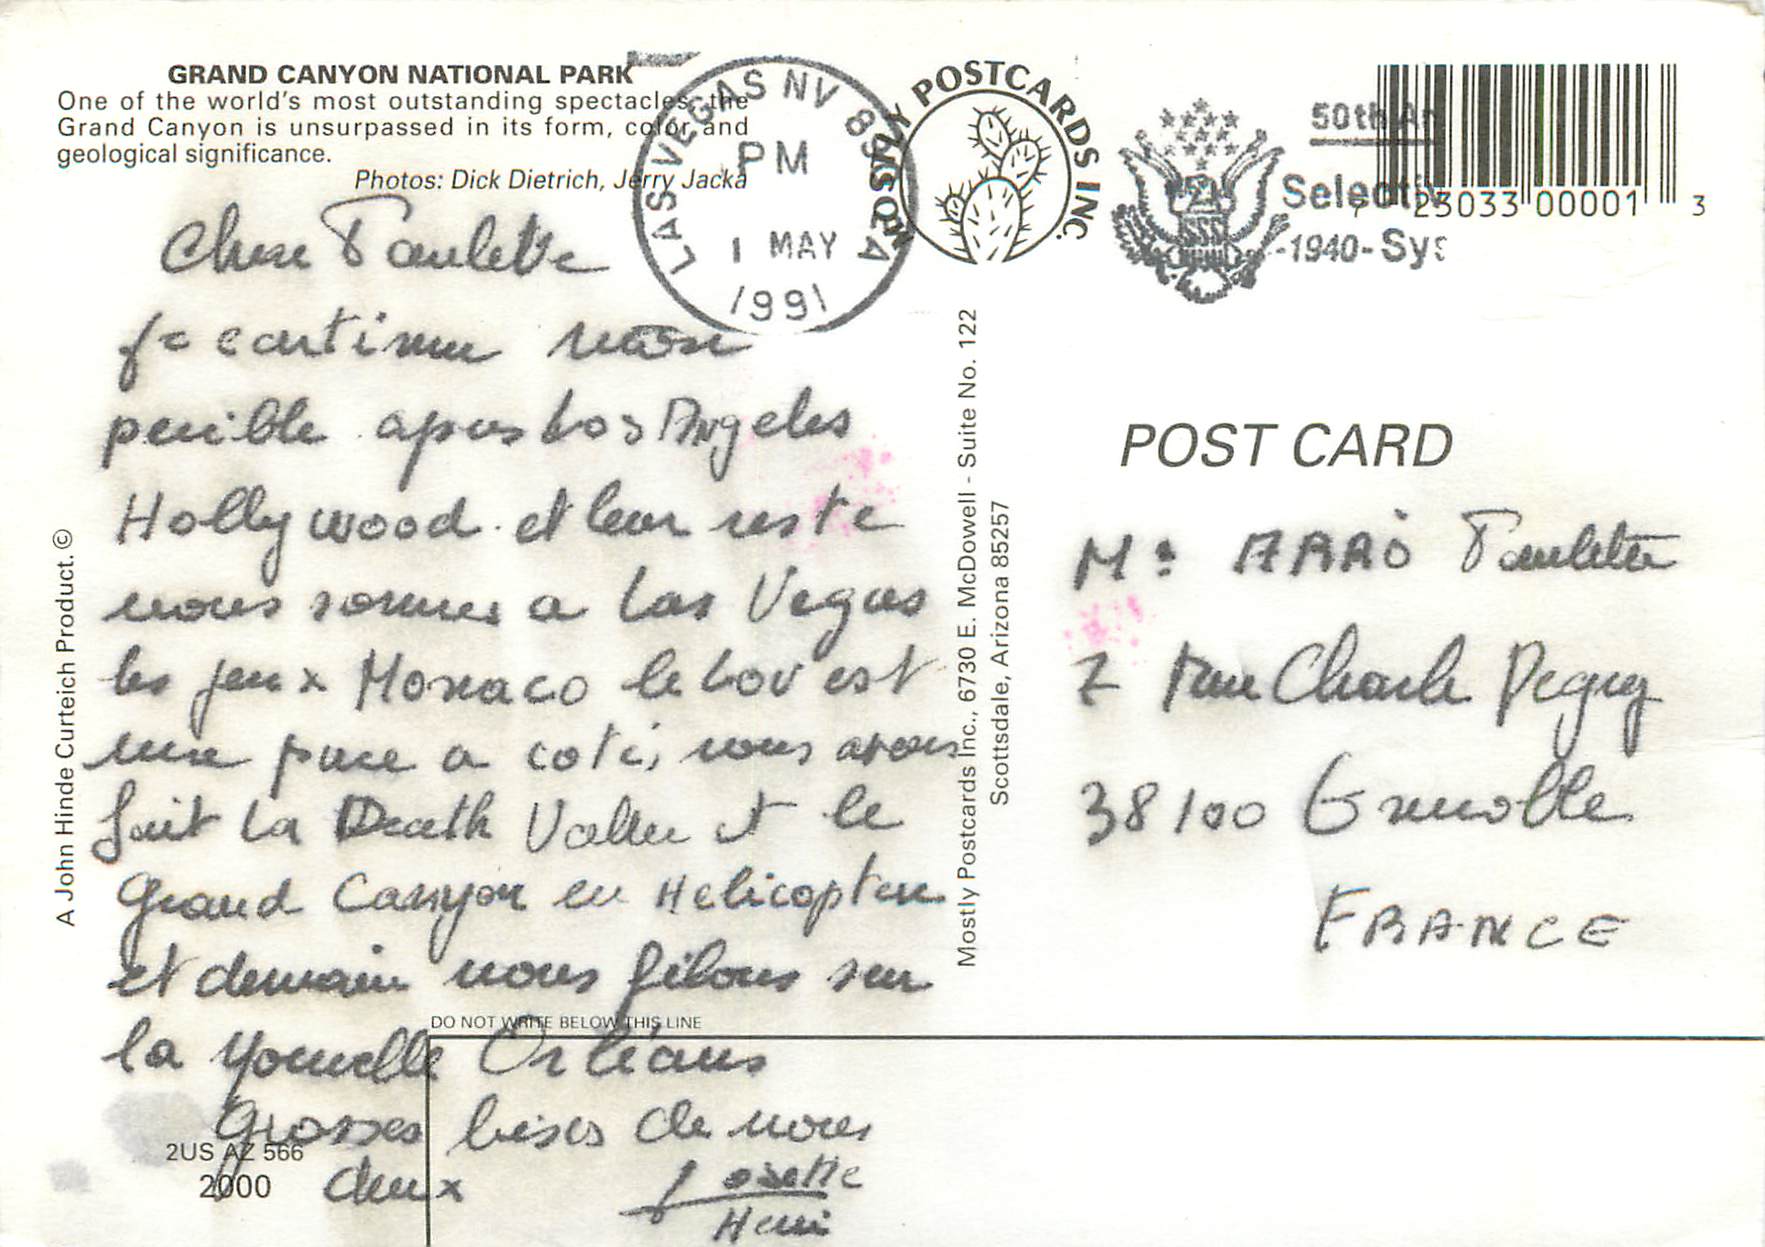 GRAND CANYON NATIONAL PARK
One of the world's most outstanding spectacles, the
Grand Canyon is unsurpassed in its form, color and
geological significance.
Photos: Dick Dietrich, Jerry Jacka
LAS VEGAS NV 89
PM
1 MAY
1991
MOSTLY POSTCARDS INC.
50th An
Selectiv
-1940- Sys
7 23033 00001 3
Chere Paulette
Je continue mon
penible apres Los Angeles
Hollywood et leur reste
nous sommes a Las Vegas
les jeux Monaco le Lov est
une puce a coté, nous avons
fait la Death Valley et le
Grand Canyon en Helicoptere
et demain nous filons sur
la Nouvelle Orléans
Grosses bises de nous
deux
Josette
Henri
A John Hinde Curteich Product. ©
Mostly Postcards Inc., 6730 E. McDowell - Suite No. 122
Scottsdale, Arizona 85257
POST CARD
Paulette
2 Rue Charle Peguy
38100 Grenoble
FRANCE
DO NOT WRITE BELOW THIS LINE
2US AZ 566
2000